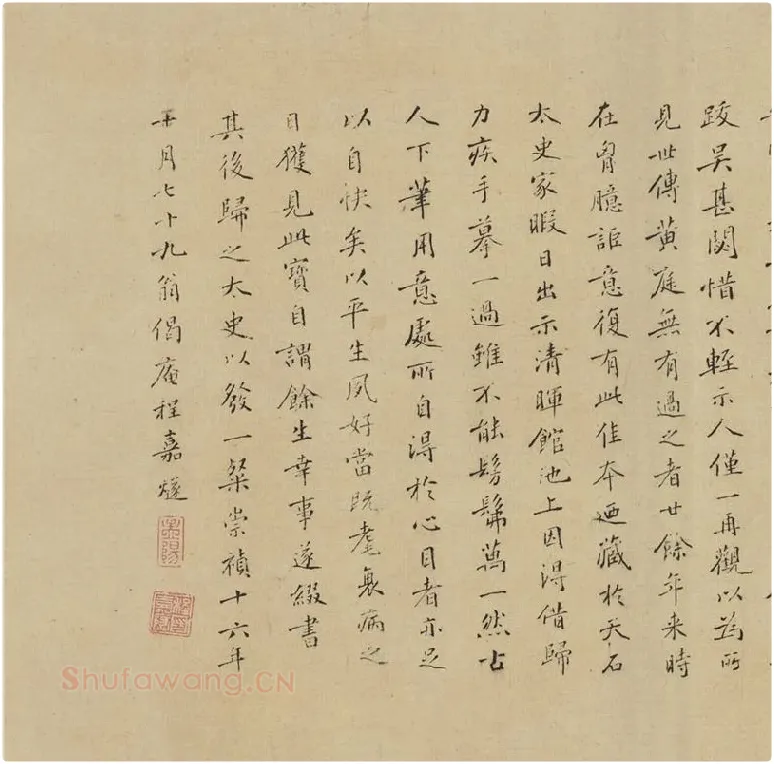 跋吴甚閟惜不輕示人僅一再觀以為所
見世傳黄庭無有過之者廿餘年来時
在胷臆詎意復有此佳本迺藏於天石
太史家暇日出示清暉館池上因得借歸
力疾手摹一過雖不能髣髴萬一然古
人下筆用意處所自得於心目者亦足
以自快矣以平生夙好當既耄衰病之
日獲見此寶自謂餘生幸事遂綴書
其後歸之太史以發一粲崇禎十六年
月七十九翁偈庵程嘉燧
Shufawang.CN